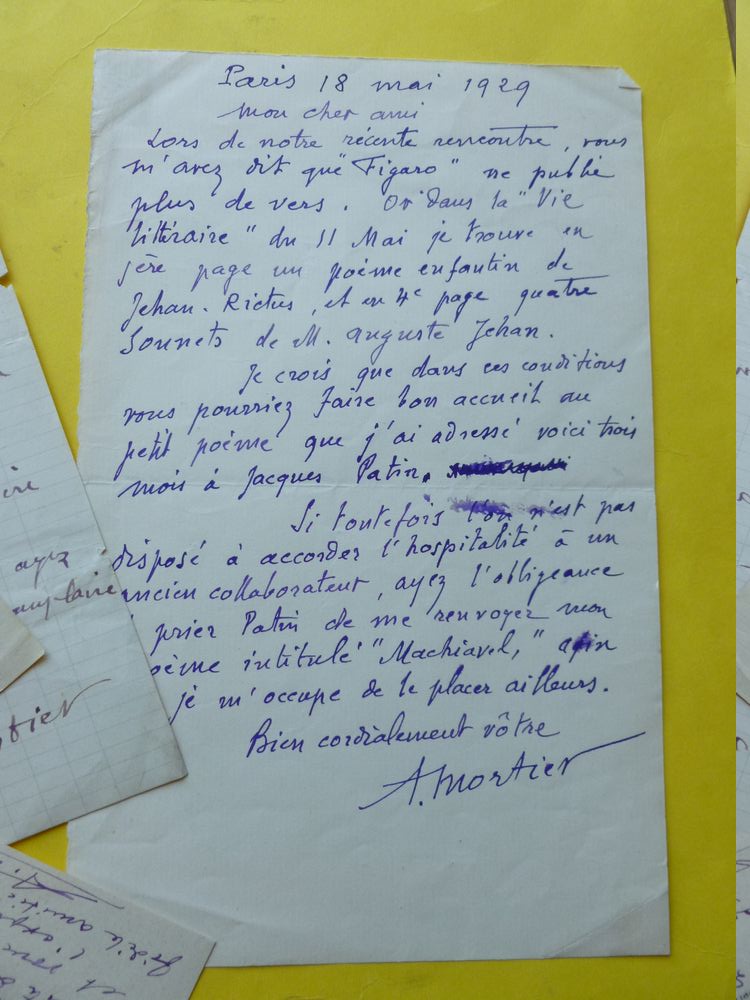 Paris 18 mai 1929
Mon cher ami
Lors de notre récente rencontre, vous
m'avez dit que "Figaro" ne publie
plus de vers. Or dans la "Vie
littéraire" du 11 Mai je trouve en
1ère page un poème enfantin de
Jehan-Rictus, et en 4e page quatre
Sonnets de M. Auguste Jehan.
Je crois que dans ces conditions
vous pourriez faire bon accueil au
petit poème que j'ai adressé voici trois
mois à Jacques Patin.
Si toutefois l'on n'est pas
disposé à accorder l'hospitalité à un
ancien collaborateur, ayez l'obligeance
prier Patin de me renvoyer mon
oème intitulé "Machiavel," afin
je m'occupe de le placer ailleurs.
Bien cordialement vôtre
A. Mortier
ayez